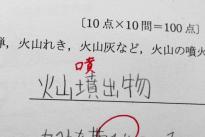 〔10点×10問=100点〕
弾，火山れき，火山灰など，火山の噴火
噴
火山墳出物